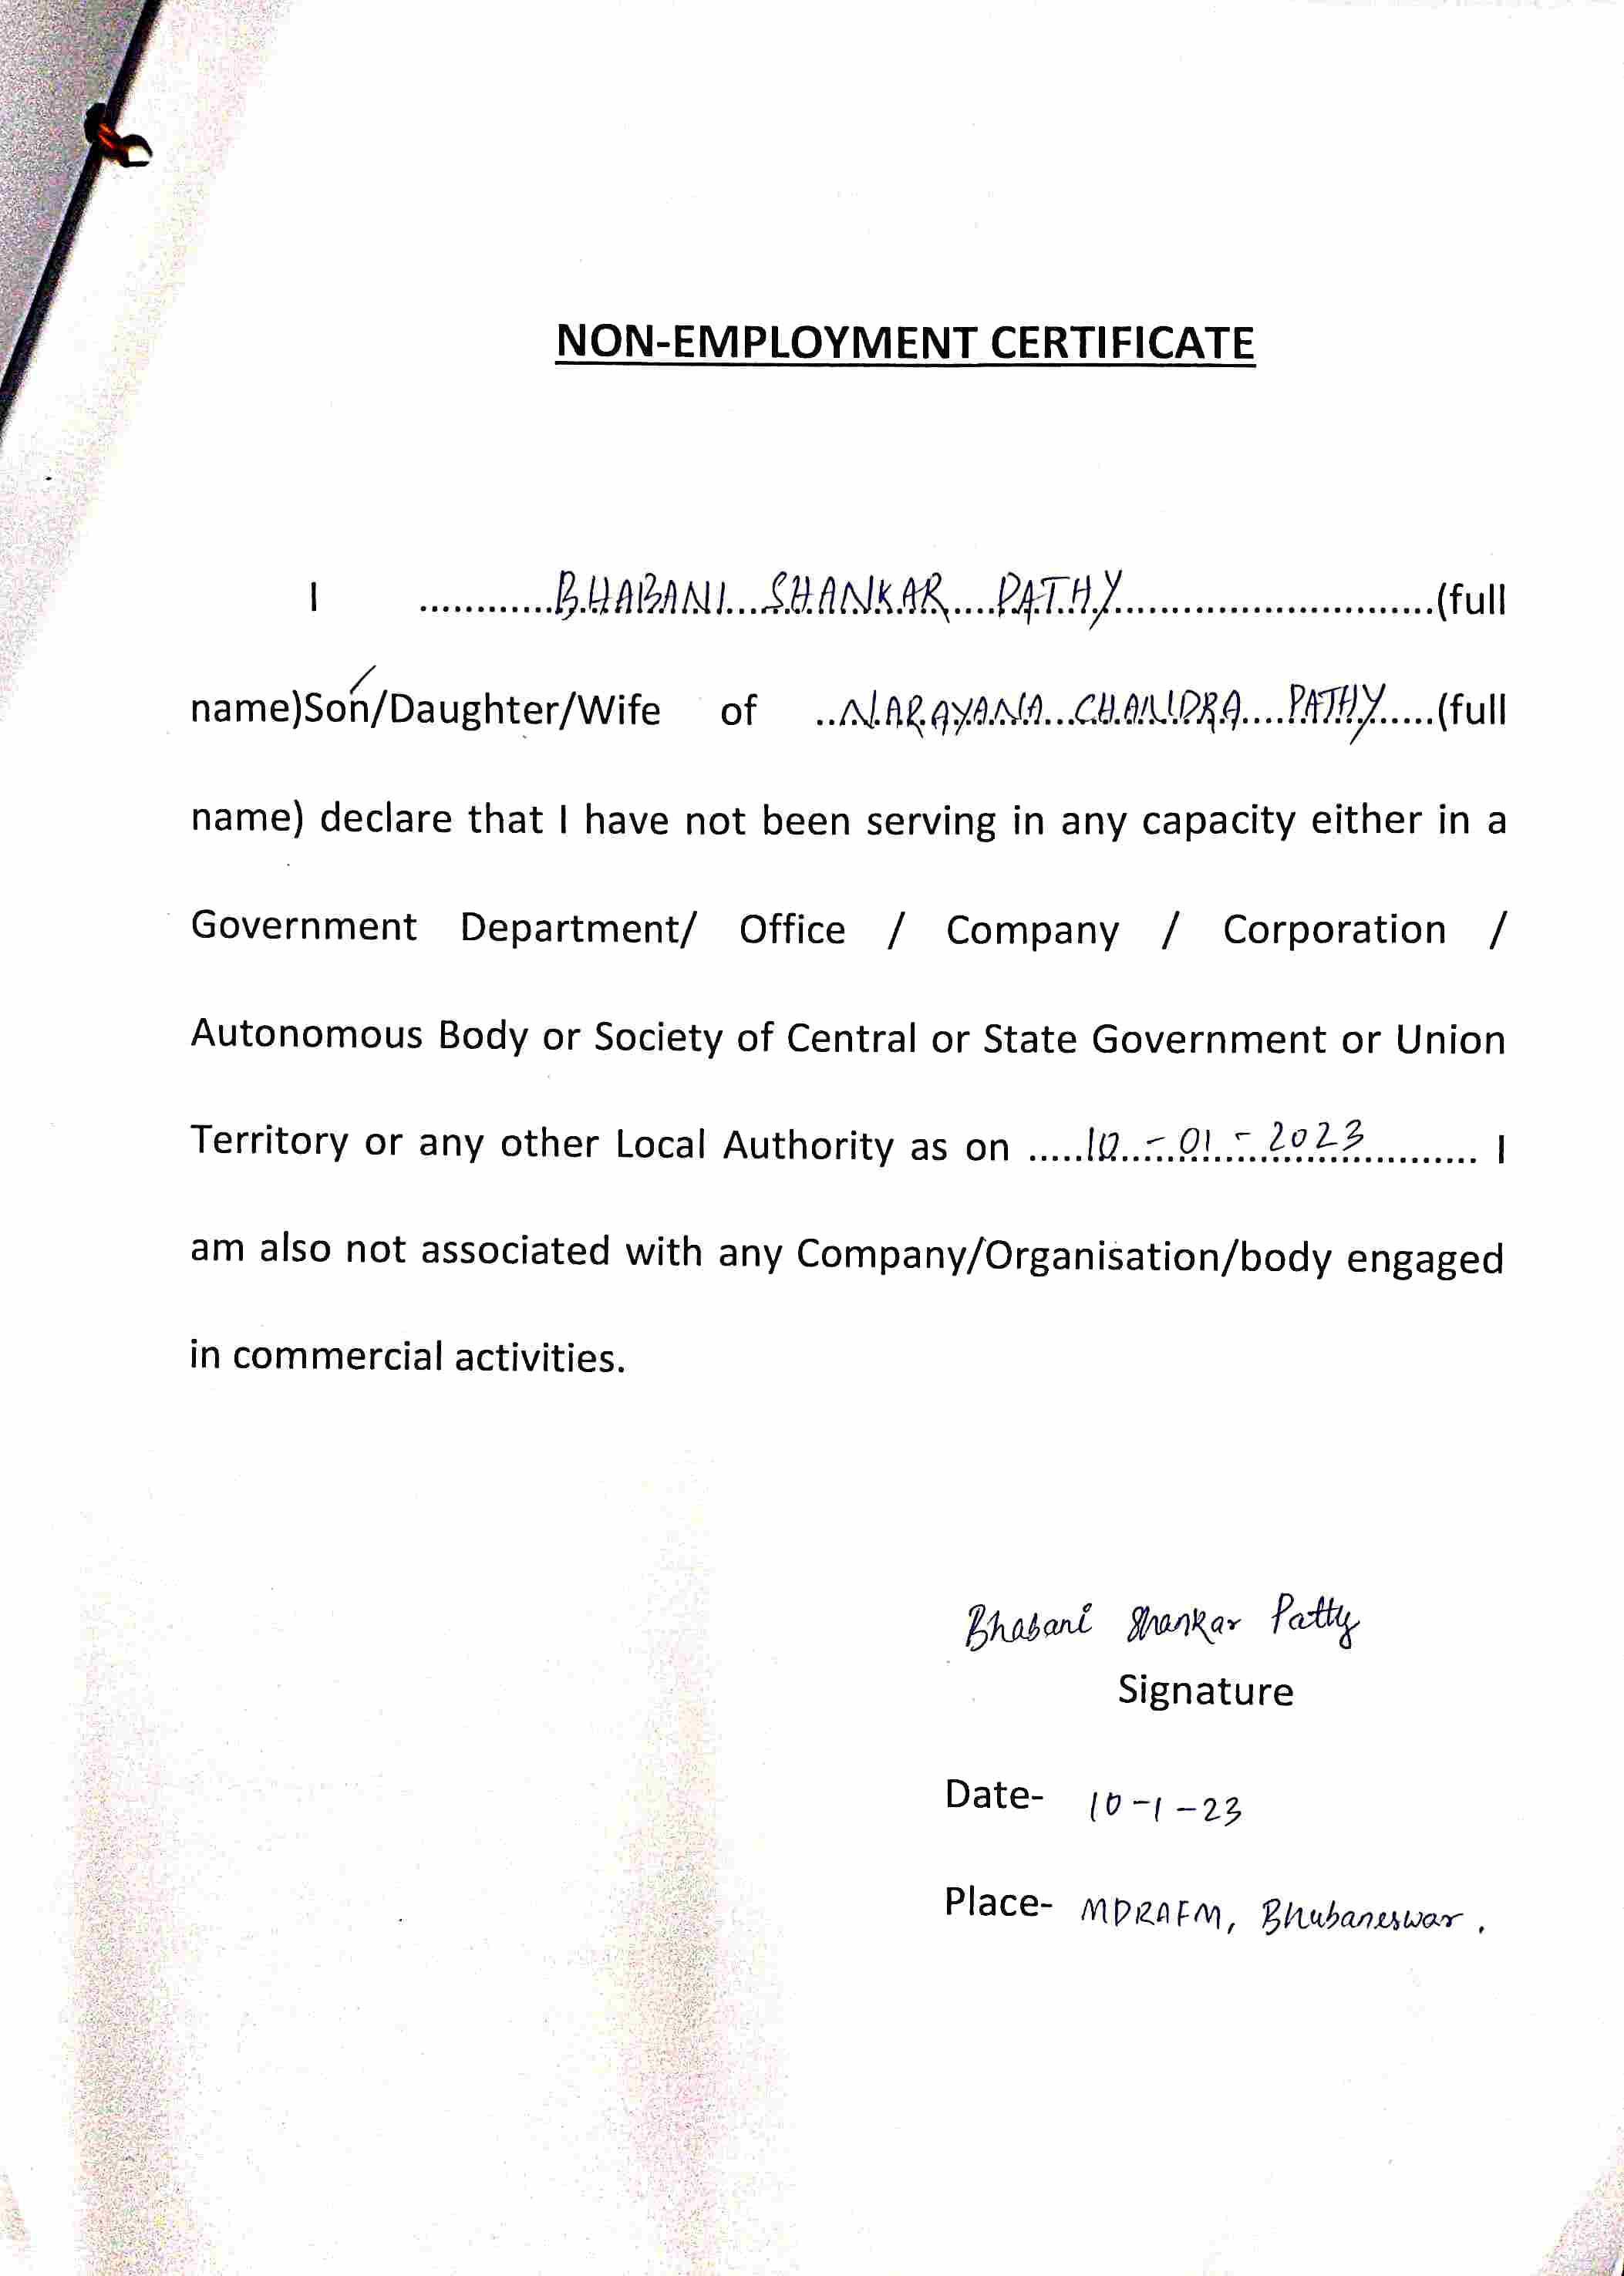 NON-EMPLOYMENT CERTIFICATE
I ............BHABANI...SHANKAR....PATHY.............................(full
name)Son/Daughter/Wife of ..NARAYANA...CHANDRA....PATHY.....(full
name) declare that I have not been serving in any capacity either in a
Government Department/ Office / Company / Corporation /
Autonomous Body or Society of Central or State Government or Union
Territory or any other Local Authority as on .....10 - 01 - 2023.......... I
am also not associated with any Company/Organisation/body engaged
in commercial activities.
Bhabani Shankar Pathy
Signature
Date- 10-1-23
Place- MDRAFM, Bhubaneswar.